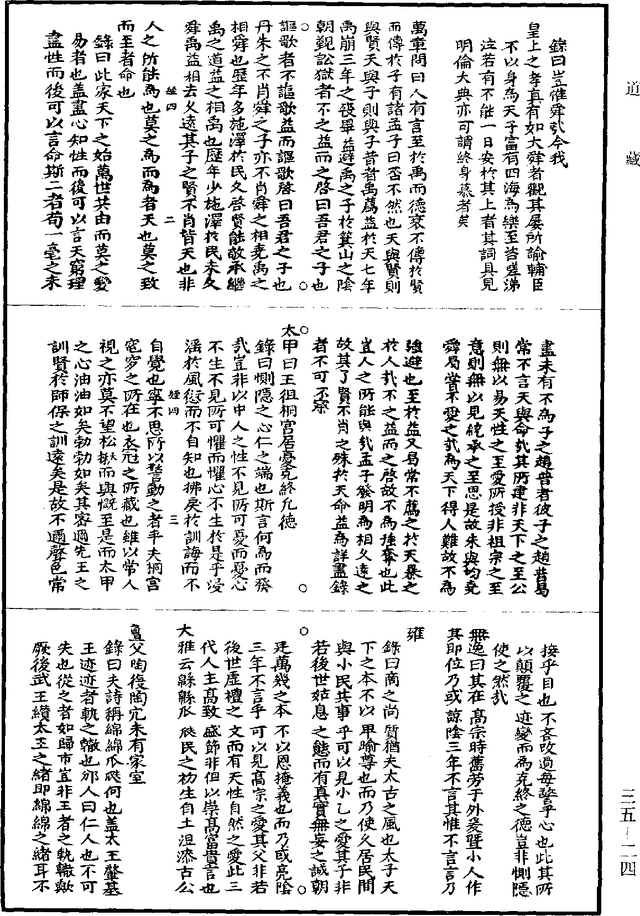 道藏
錄曰豈惟舜哉今我
皇上之孝真有如大舜者觀其屢所諭輔臣
不以身為天子富有四海為樂至咨嗟涕
泣若有不能一日安於其上者其詞具見
明倫大典亦可謂終身慕者矣
萬章問曰人有言至於禹而德衰不傳於賢
而傳於子有諸孟子曰否不然也天與賢則
與賢天與子則與子昔者禹薦益於天七年
禹崩三年之喪畢益避禹之子於箕山之陰
朝覲訟獄者不之益而之啓曰吾君之子也
謳歌者不謳歌益而謳歌啓曰吾君之子也
丹朱之不肖舜之子亦不肖舜之相堯禹之
相舜也歷年多施澤於民久啓賢能敬承繼
禹之道益之相禹也歷年少施澤於民未久
舜禹益相去久遠其子之賢不肖皆天也非
經四 二
人之所能為也莫之為而為者天也莫之致
而至者命也
錄曰此家天下之始萬世共由而莫之愛
易者也蓋盡心知性而後可以言天窮理
盡性而後可以言命斯二者苟一毫之未
盡未有不為子之趙普者彼子之趙普曷
常不言天與命哉其所建非天下之至公
則無以易天性之至愛所授非祖宗之至
意則無以見統承之至思是故朱與均堯
舜曷嘗不愛之哉為天下得人難故不為
強避也至於益又曷常不薦之於天暴之
於人哉不之益而之啓故不為強奪也此
豈人之所能與哉孟子發明為相久遠之
故其子賢不肖之殊於天命益為詳盡錄
者不可不察
太甲曰王徂桐宮居憂克終允德
錄曰惻隱之心仁之端也斯言何為而發
哉豈非以中人之性不見所可憂而憂心
不生不見所可懼而懼心不生於是乎浸
淫於風愆而不自知也拂戾於訓誨而不
經四 三
自覺也寧不思所以警動之者乎夫桐宮
窀穸之所在也衣冠之所藏也雖以常人
視之亦莫不望松楸而興慨至是而太甲
之心油油如矣勃勃如矣其密邇先王之
訓賢於師保之訓遠矣是故不邇聲色常
接乎目也不吝改過每警乎心也此其所
以顛覆之迹變而為克終之德豈非惻隱
使之然哉
無逸曰其在高宗時舊勞于外爰暨小人作
其即位乃或諒陰三年不言其惟不言言乃
雍
錄曰商之尚質猶夫太古之風也太子天
下之本不以甲喻尊也而乃使久居民間
與小民共事乎可以見小乙之愛其子非
若後世姑息之態而有真實無妄之誠朝
廷萬幾之本不以恩掩義也而乃或亮陰
三年不言乎可以見高宗之愛其父非若
後世虛禮之文而有天性自然之愛此三
代人主高致盛節非但以崇高富貴言也
大雅云緜緜瓜瓞民之初生自土沮漆古公
亶父陶復陶穴未有家室
錄曰夫詩稱綿綿瓜瓞何也蓋太王肇基
王迹迹者軌之轍也邠人曰仁人也不可
失也從之者如歸市豈非王者之軌轍歟
厥後武王纘太王之緒即綿綿之緒耳不
三五―二四